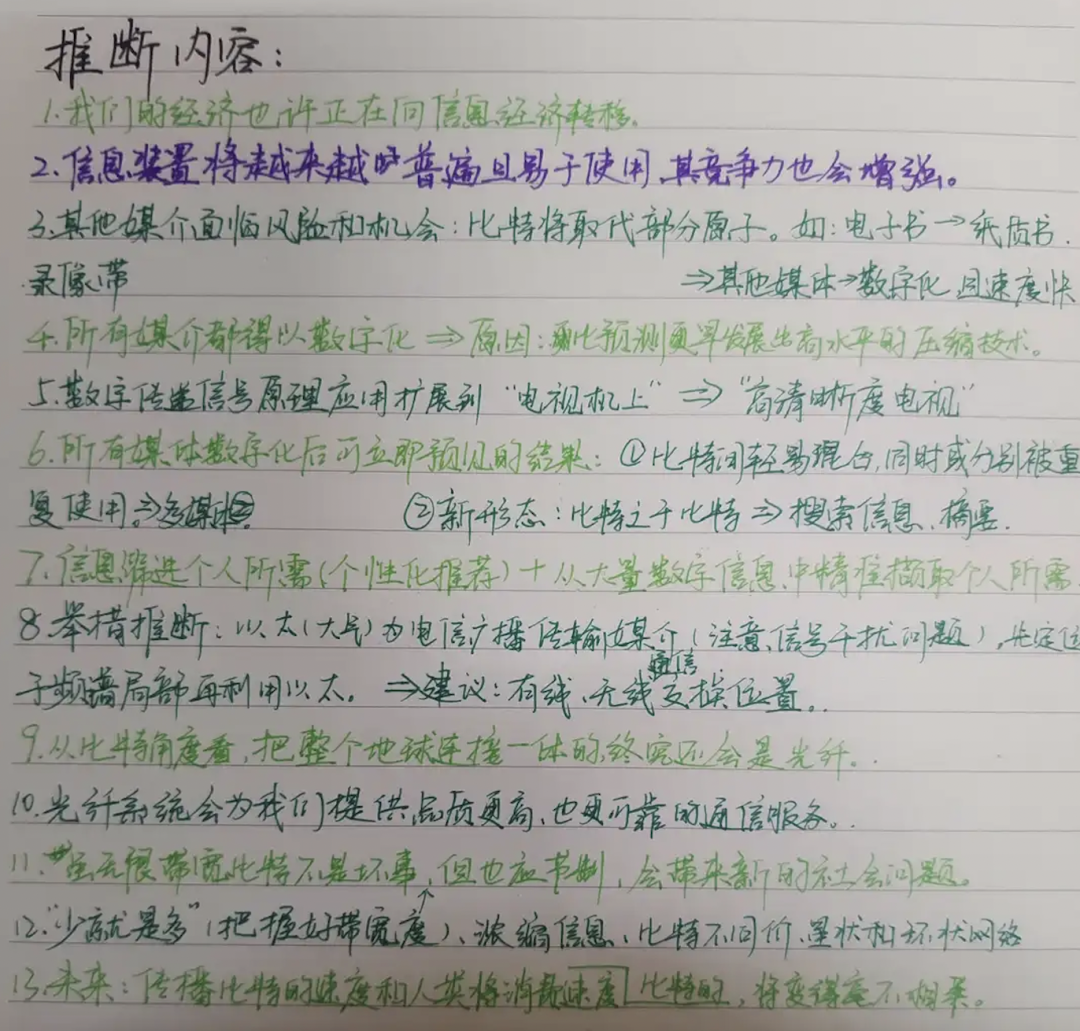 推断内容:
1.我们的经济也许正在向信息经济转移。
2.信息装置将越来越的普遍且易于使用,其竞争力也会增强。
3.其他媒介面临风险和机会:比特将取代部分原子。如:电子书→纸质书.
录像带 ⇒其他媒体→数字化,且速度快
4.所有媒介都得以数字化⇒原因:比预测更早发展出高水平的压缩技术。
5.数字传送信号原理应用扩展到“电视机上”⇒“高清晰度电视”
6.所有媒体数字化后可立即预见的结果:①比特间轻易混合,同时或分别被重
复使用⇒多媒体 ②新形态:比特之于比特⇒搜索信息、摘要.
7.信息筛选个人所需(个性化推荐)+从大量数字信息中精准撷取个人所需
8.举措推断:以太(大气)为电信广播传输媒介(注意、信号干扰问题),先定位
于频谱局部再利用以太。⇒建议:有线、无线通信互换位置。
9.从比特角度看,把整个地球连接一体的,终究还会是光纤。
10.光纤系统会为我们提供品质更高、也更可靠的通信服务。
11.无限带宽比特不是坏事,但也应节制,会带来新的社会问题。
12.“少就是多”(把握好带宽度)、浓缩信息、比特不同价、星状和环状网络
13.未来:传播比特的速度和人类将消耗速度比特的,将变得毫不相类。